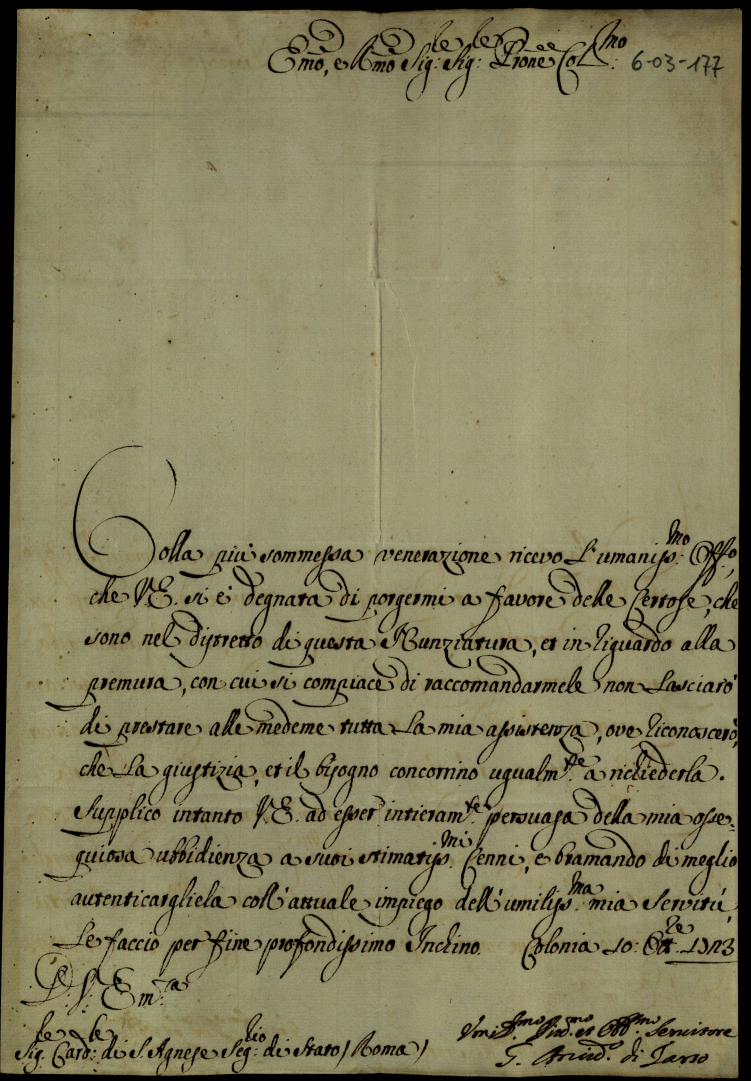 Emo, e Rmo Sig:re Sig:re Prone Col:mo 6-03-177
Colla più sommessa venerazione ricevo l'umaniss:mo Offo,
che V.E. si è degnata di porgermi a favore delle Certose, che
sono nel distretto di questa Nunziatura, et in riguardo alla
premura, con cui si compiace di raccomandarmele non lasciarò
di prestare alle medeme tutta la mia assistenza, ove riconoscerò,
che la giustizia, et il bisogno concorrino ugualm:te a richiederla.
Supplico intanto V.E. ad esser intieram:te persuasa della mia osse-
quiosa ubbidienza a suoi stimatiss:mi Cenni, e bramando di meglio
autenticargliela coll'attuale impiego dell'umiliss:ma mia Servitù
Le faccio per fine profondissimo Inchino. Colonia 10: Ott:re 1723
Di V. Em:a
Sig:le Card:le di S. Agnese Seg:rio di Stato / Roma /
Servitore
di Tarso